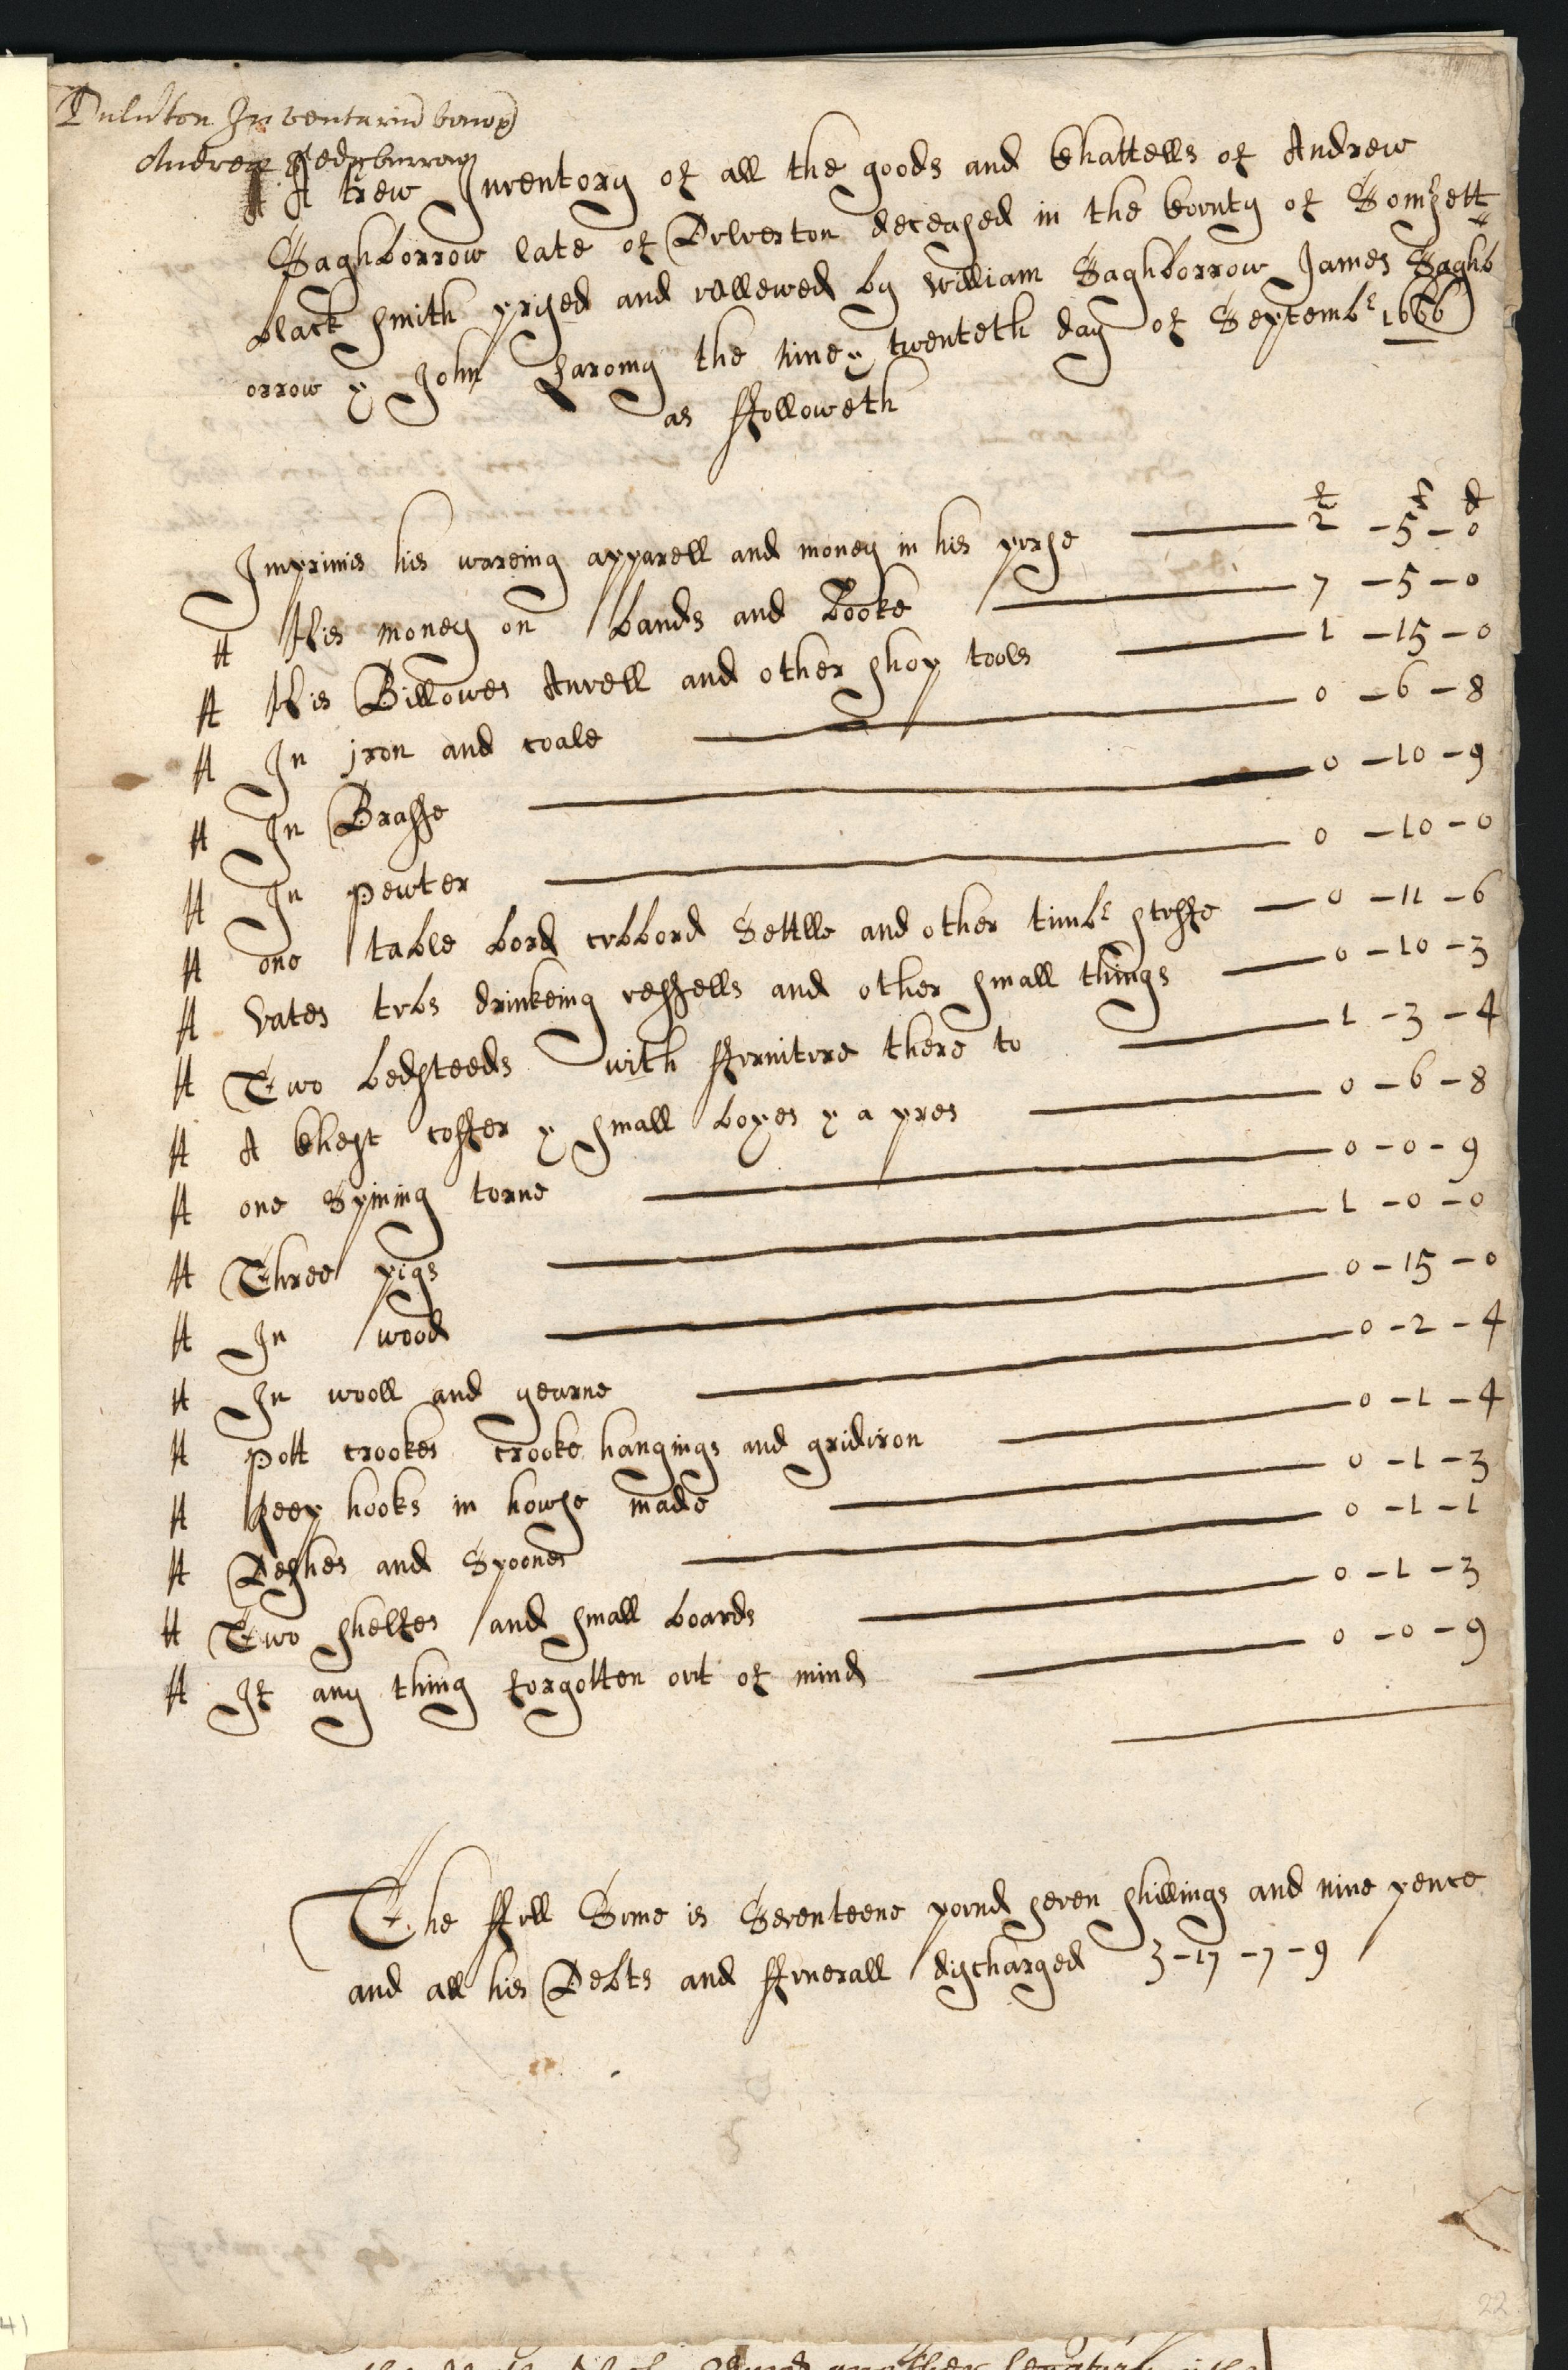 Dulverton Inventariu bonoru
Andreæ Sedgburrow
A trew Inventory of all the goods and Chattells of Andrew
Saghborrow late of Dulverton deceased in the County of Somsett
black smith prised and vallewed by William Saghborrow James Saghb
orrow & John the nine & twenteth day of Septembr 1666
as ffolloweth
£ s d
Imprimis his wareing apparell and money in his purse 2 - 5 - 0
It His money on bands and Booke 7 - 5 - 0
It His Billowes Anvell and other shop tools 1 - 15 - 0
It In jron and coale 0 - 6 - 8
It In Brasse 0 - 10 - 9
It In pewter 0 - 10 - 0
It one table bord cubbord Settlle and other timbr stuffe 0 - 11 - 6
It vates tubs drinkeing vessells and other small things 0 - 10 - 3
It Two bedsteeds with ffurniture there to 1 - 3 - 4
It A Chest coffer & small boxes & a pres 0 - 6 - 8
It one Spining torne 0 - 0 - 9
It Three pigs 1 - 0 - 0
It In wood 0 - 15 - 0
It In wooll and yearne 0 - 2 - 4
It pott crookes crooke hangings and gridiron 0 - 1 - 4
It hooks in howse made 0 - 1 - 3
It Deshes and Spoones 0 - 1 - 1
It Two shelfes and small boards 0 - 1 - 3
It If any thing forgotten out of mind 0 - 0 - 9
The ffull Sume is Seventeene pound seven shillings and nine pence
and all his Debts and ffunerall discharged 17 - 7 - 9
22